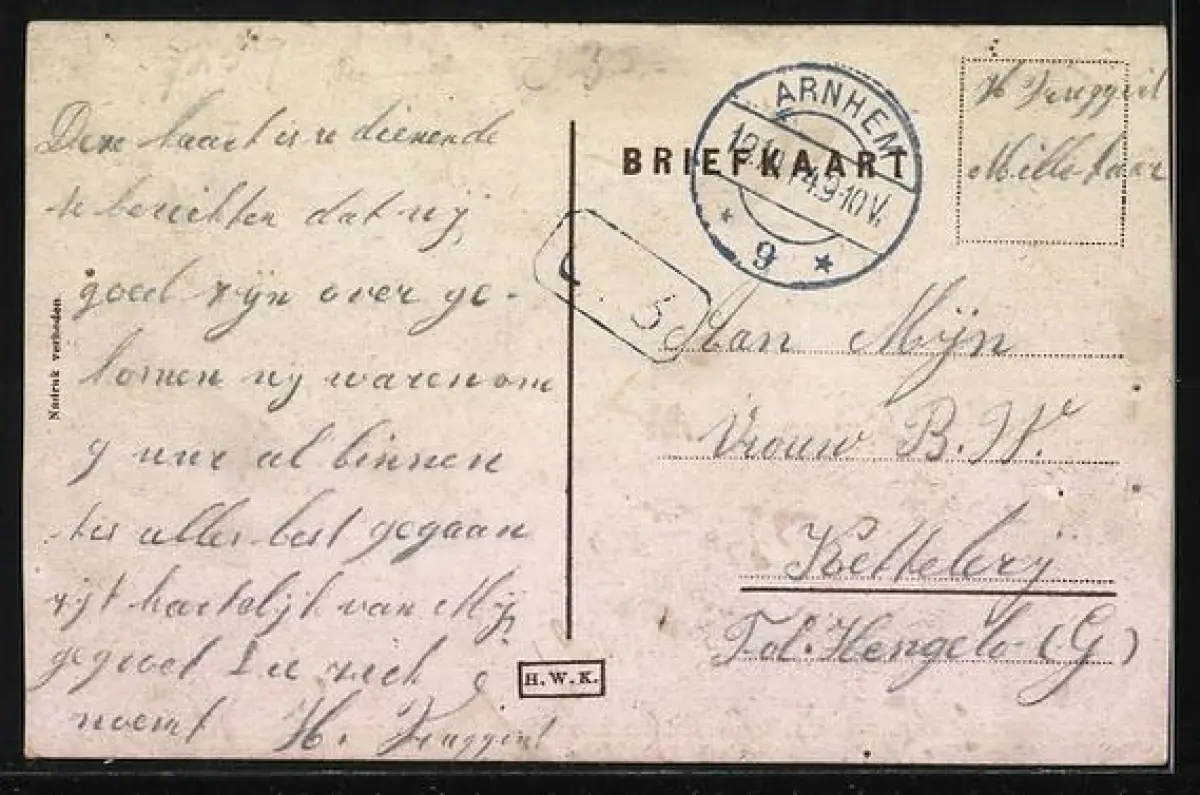 Deze kaart is u dienende
te berichten dat wij
goed zijn over ge-
komen wij waren om
9 uur al binnen
tis alles best gegaan
zijt hartelijk van Mij
gegroet die zich
noemt H.
Nadruk verboden
H.W.K.
BRIEFKAART
ARNHEM
4.9-10V.
9
5
H
Aan Mijn
Vrouw B. W.
Kettelerij
Hengelo (G)